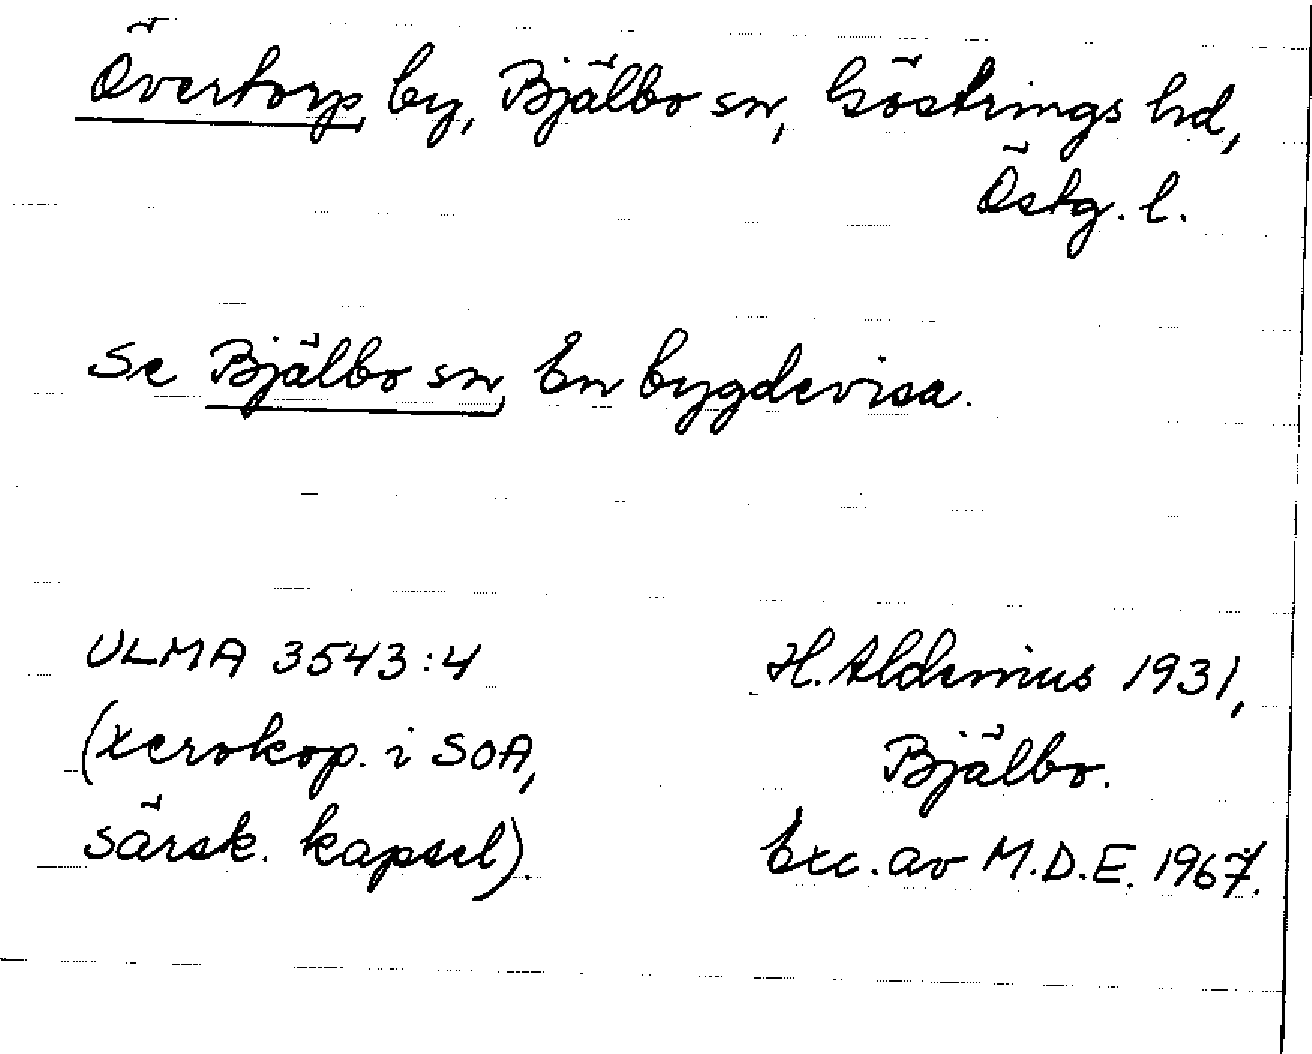 Övertorp by, Bjälbo sn, Göstrings hd,
Östg. l.
Se Bjälbo sn, En bygdevisa.
ULMA 3543:4
(xerokop. i SOA,
särsk. kapsel).
H. Aldernius 1931,
Bjälbo.
Exc. av M.D.E. 1967.